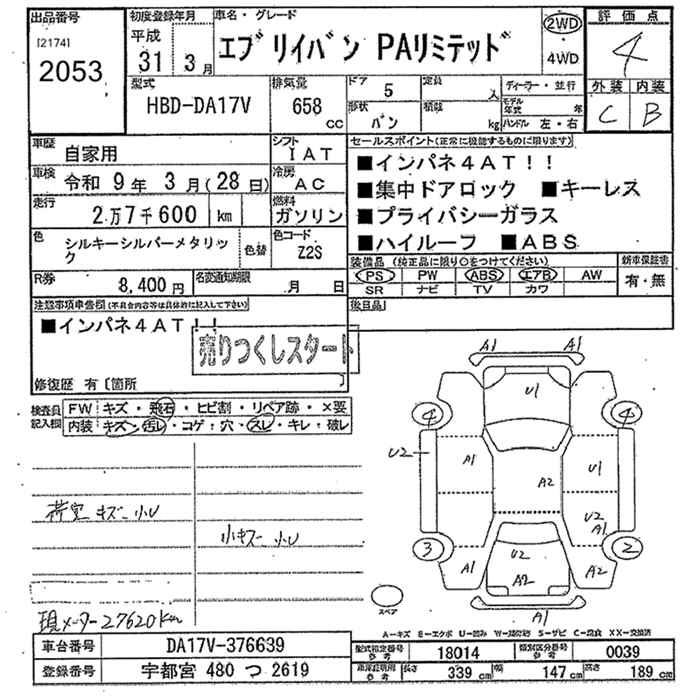 出品番号
[2174]
2053
初度登録年月
平成
31年 3月
車名・グレード
エブリイバン PAリミテッド
2WD
4WD
評価点
4
外装 内装
C B
型式
HBD-DA17V
排気量
658 CC
ドア
5
定員
人
形状
バン
積載
kg
ディーラー・並行
モデル年式 年
ハンドル 左・右
車歴
自家用
シフト
IAT
車検
令和 9年 3月(28日)
冷房
AC
走行
2万7千600 km
燃料
ガソリン
色
シルキーシルバーメタリック
色替
色コード
Z2S
R券
8,400円
名変通知期限
月 日
セールスポイント(正常に機能するものに限ります)
■インパネ4AT!!
■集中ドアロック ■キーレス
■プライバシーガラス
■ハイルーフ ■ABS
装備品 (純正品に限り○をつけてください)
PS PW ABS エアB AW
SR ナビ TV カワ
新車保証書
有・無
後日品
注意事項申告欄(不具合内容等は具体的に記入して下さい)
■インパネ4AT!!
売りつくしスタート
修復歴 有〔箇所
検査員記入欄
FW キズ・飛石・ヒビ割・リペア跡・×要
内装 キズ・汚レ・コゲ・穴・スレ・キレ・破レ
荷室キズ小U
小キズ小U
現メーター27620km
A1 A1
U1
4 4
U2 A1 U1
A2
U2
A1
3 2
A1 U2 A2
A2
A1
スペア
A-キズ E-エクボ U-凹み W-補修跡 S-サビ C-腐食 XX-交換済
車台番号 DA17V-376639
型式指定番号 参考 18014
類別区分番号 参考 0039
登録番号 宇都宮 480 つ 2619
長さ 339 幅 147 高さ 189 cm